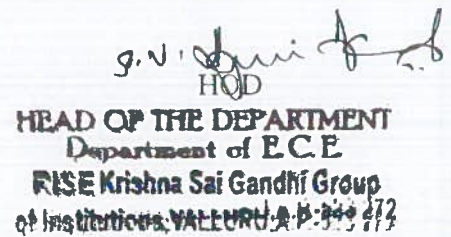 HOD
HEAD OF THE DEPARTMENT
Department of E.C.E
RISE Krishna Sai Gandhi Group
of Institutions, VALLURU, A.P-